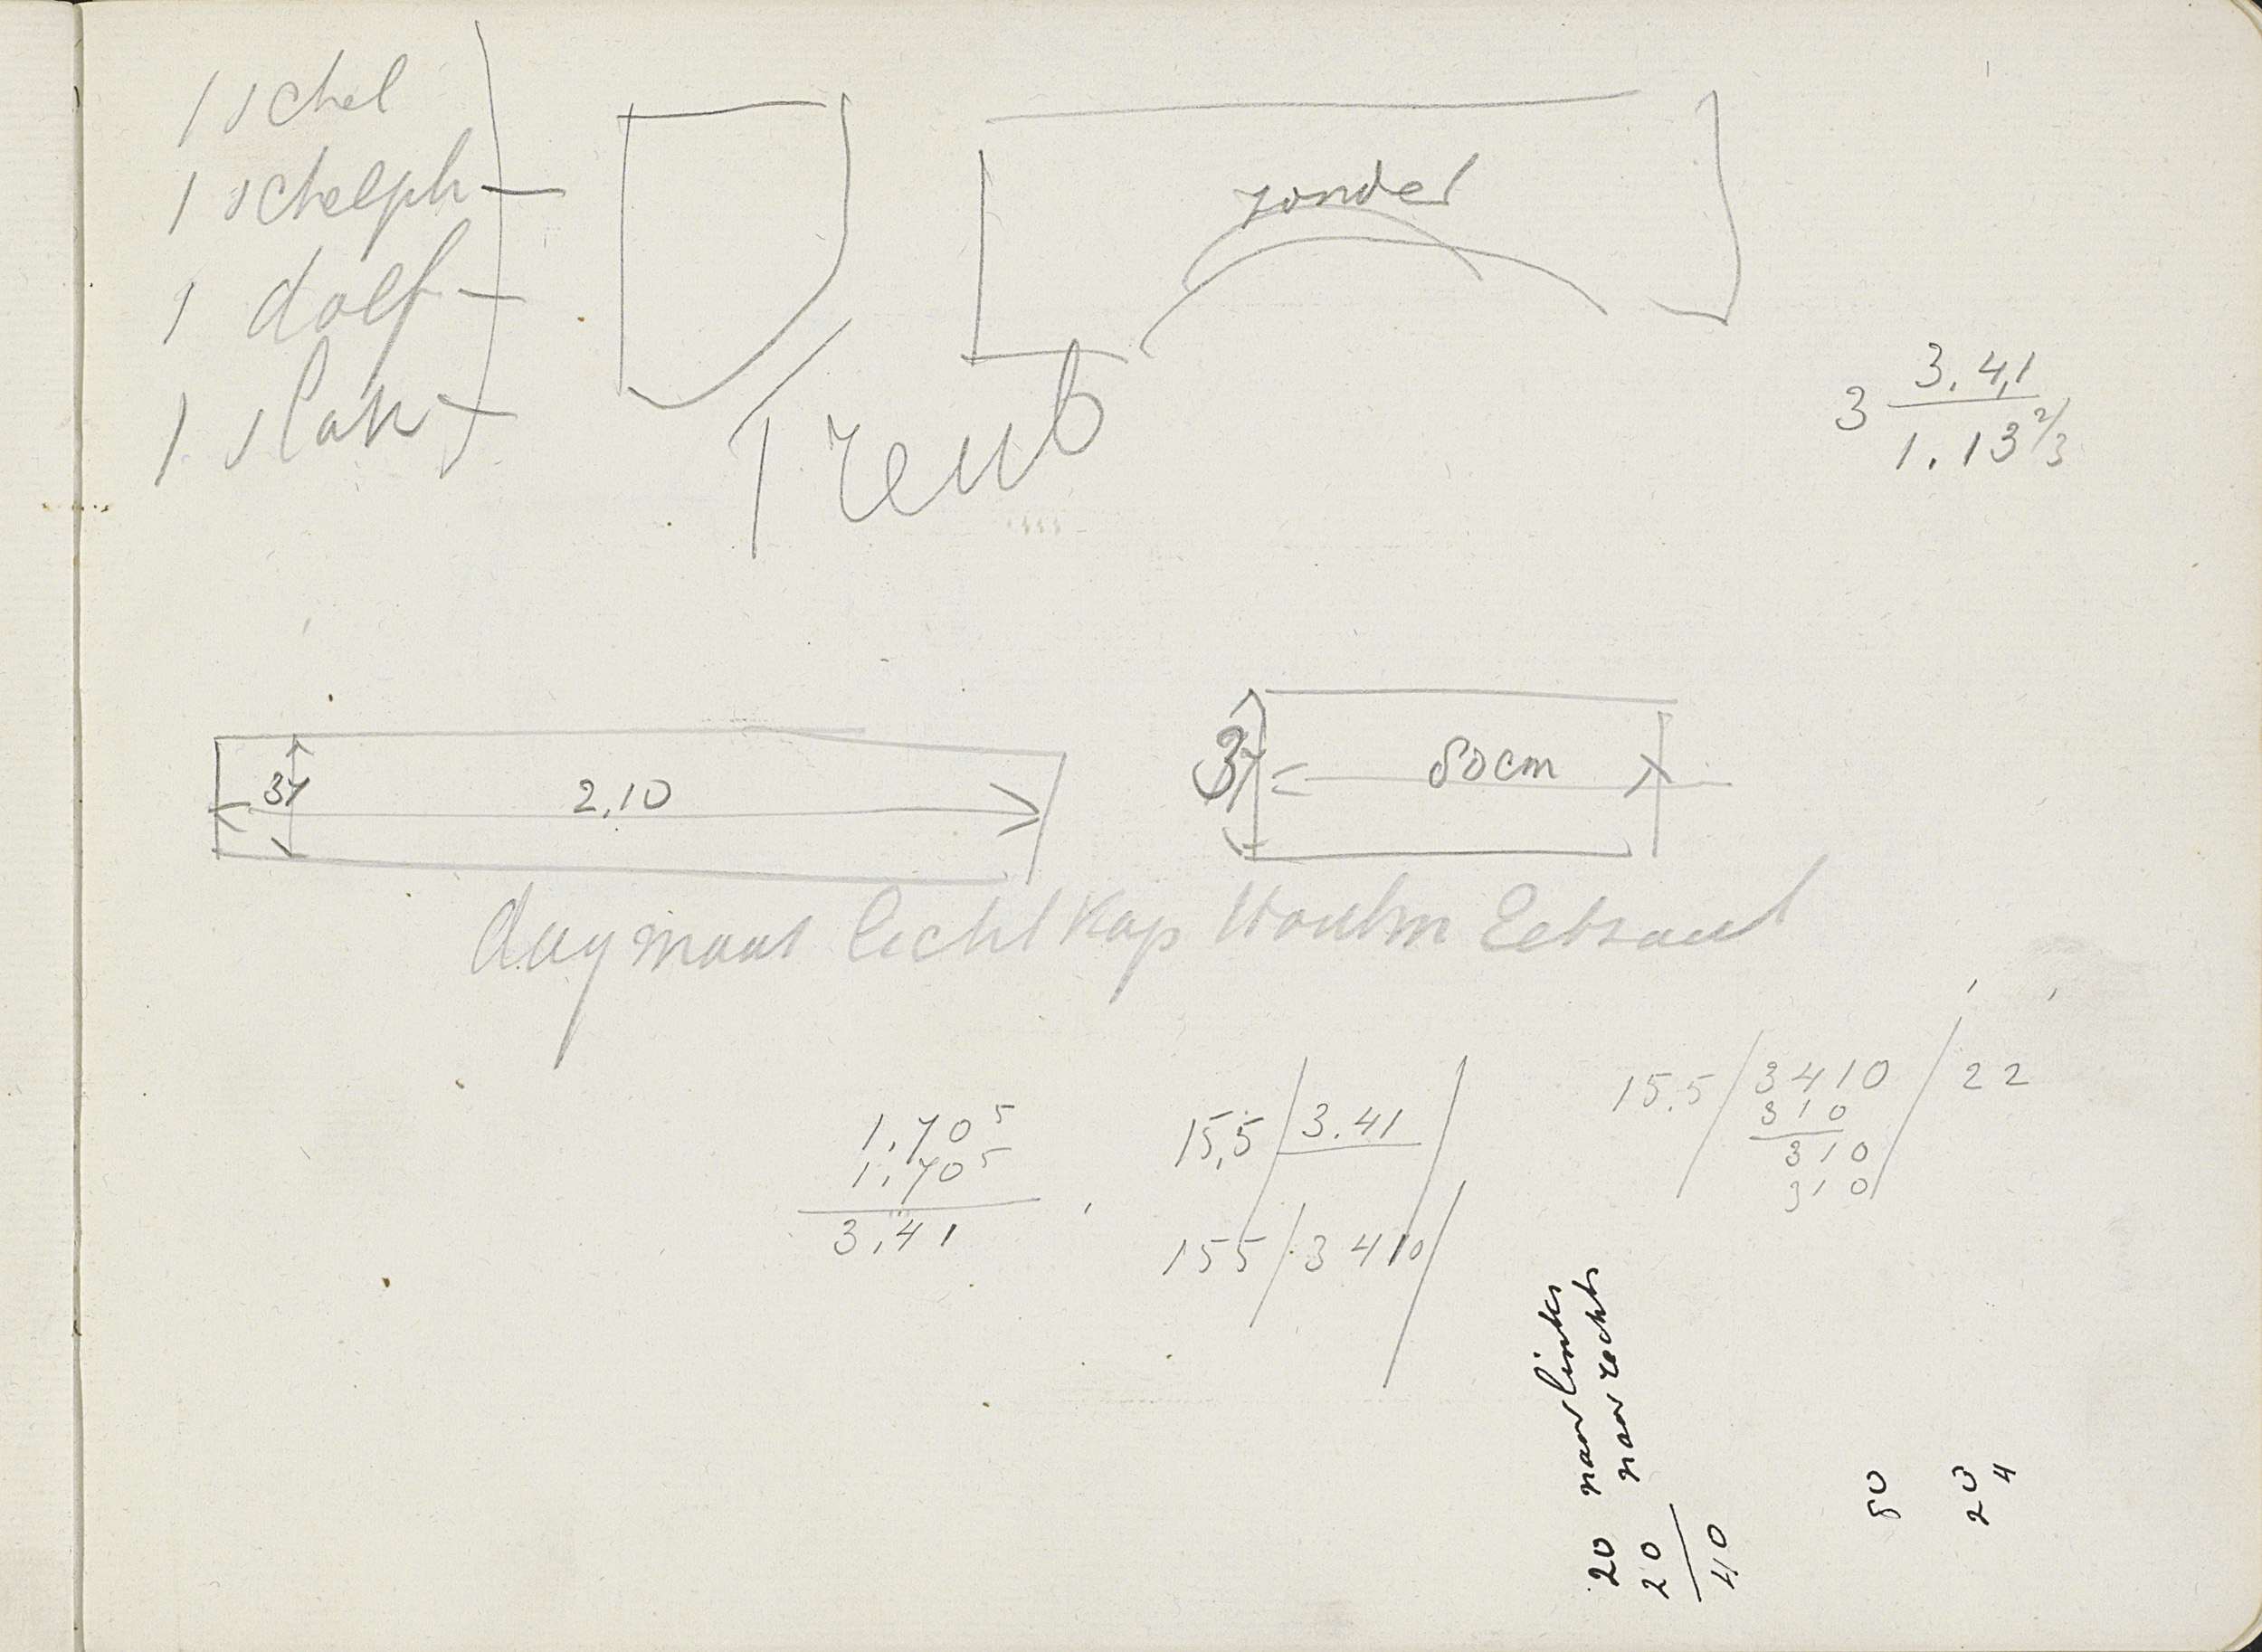 1 schel
1 schelph
1 dolf
1 slak
zonder
Treub
3 3.41
1.13 2/3
37
2.10
37
80cm
dagmaat lichtkap Eetzaal
1.70 5
1.70 5
3.41
15,5 / 3.41 /
155 / 3410 /
15.5 / 3410 / 22
310
310
310
20 naar links
20 naar rechts
40
80
20
4